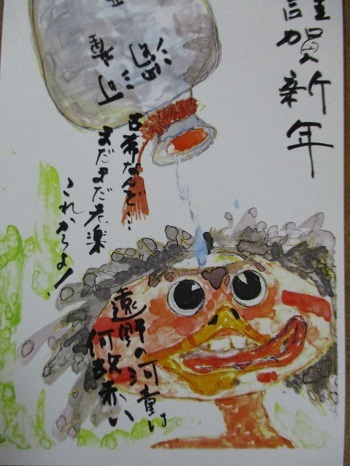 謹賀新年
古希なんど…
まだまだ老楽
これからよ!
遠野の河童は
何故赤い